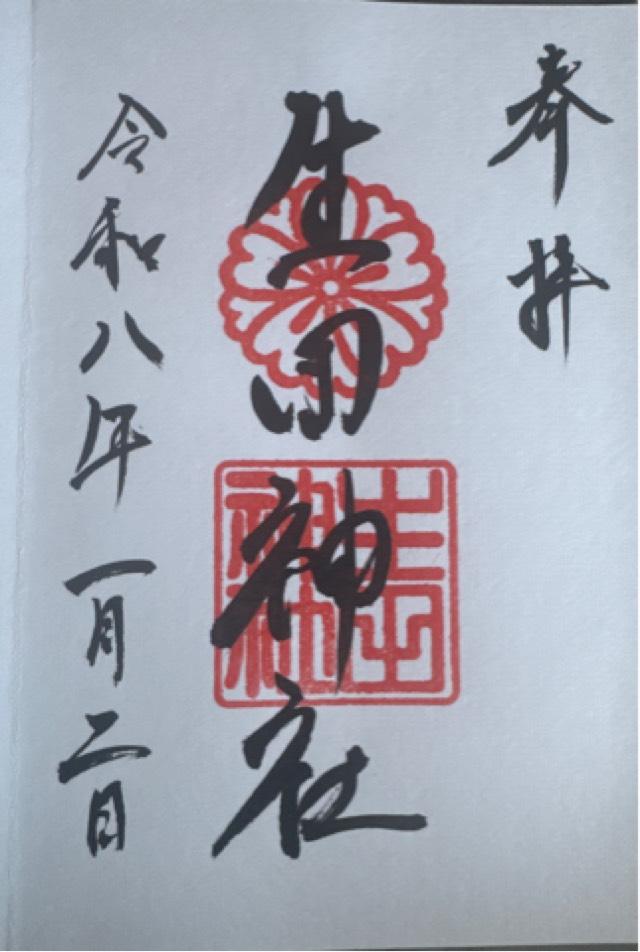 奉拝
生田神社
令和八年一月二日
生田神社